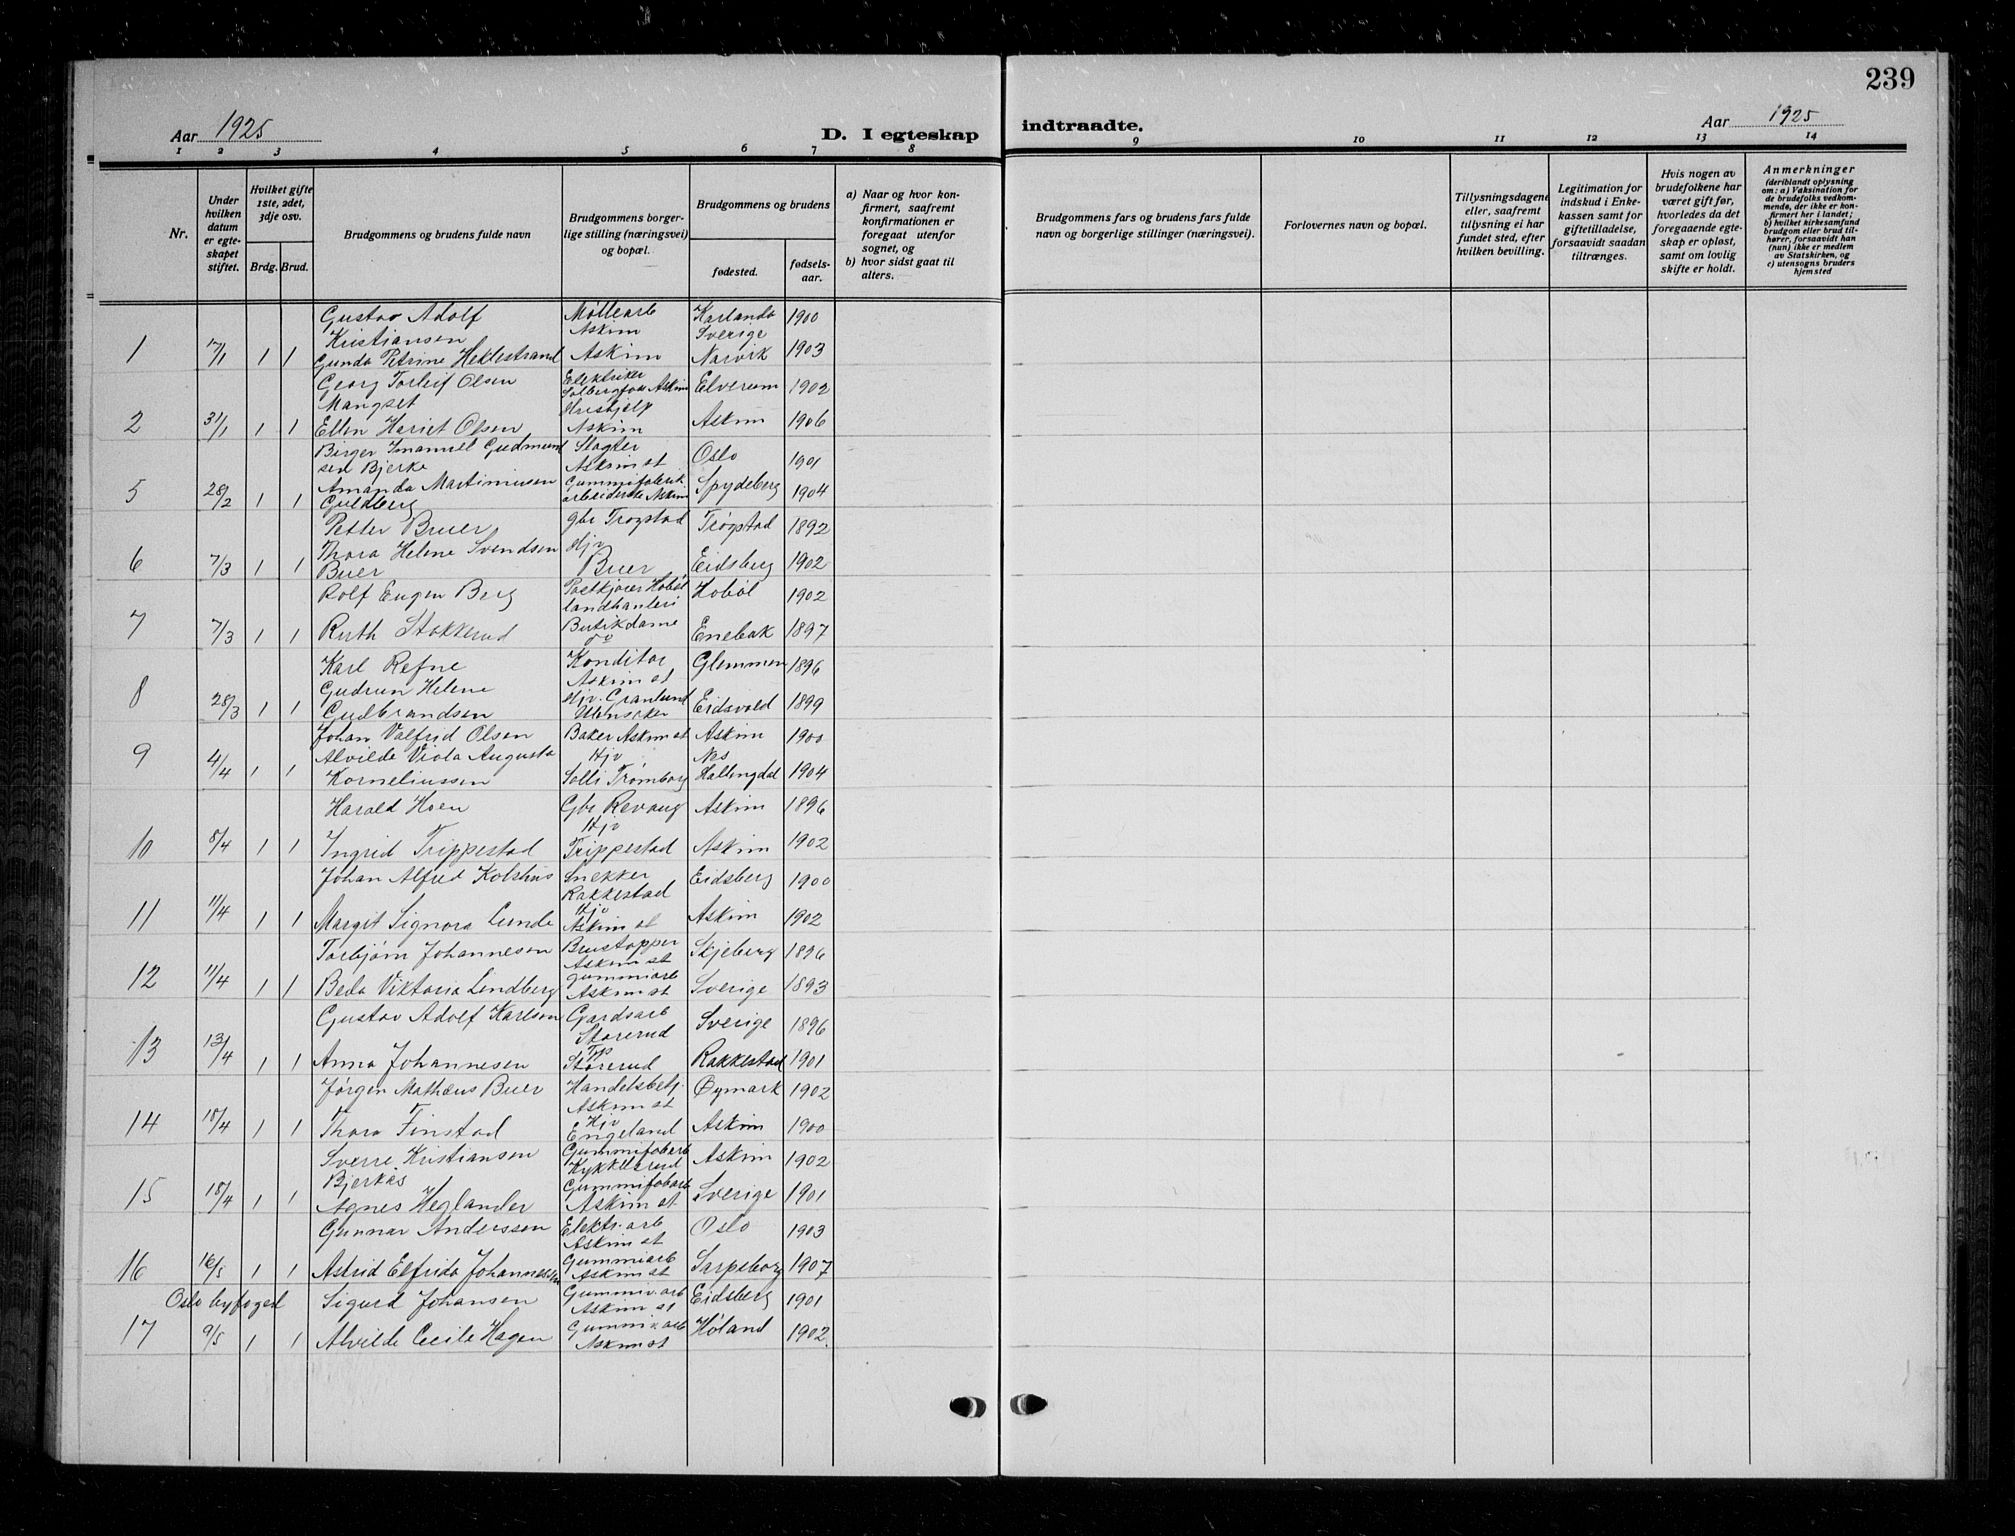 239
Aar 1925
D. I egteskap indtraadte.
Aar 1925
1 2 3 4 5 6 7 8 9 10 11 12 13 14
Nr.
Under hvilken datum er egteskapet stiftet.
Hvilket gifte 1ste, 2det, 3dje osv.
Brdg. Brud.
Brudgommens og brudens fulde navn
Brudgommens borgerlige stilling (næringsvei) og bopæl.
Brudgommens og brudens
fødested.
fødselsaar.
a) Naar og hvor konfirmert, saafremt konfirmationen er foregaat utenfor sognet, og
b) hvor sidst gaat til alters.
Brudgommens fars og brudens fars fulde navn og borgerlige stillinger (næringsvei).
Forlovernes navn og bopæl.
Tillysningsdagene eller, saafremt tillysning ei har fundet sted, efter hvilken bevilling.
Legitimation for indskud i Enkekassen samt for giftetilladelse, forsaavidt saadan tiltrænges.
Hvis nogen av brudefolkene har været gift før, hvorledes da det foregaaende egteskap er opløst, samt om lovlig skifte er holdt.
Anmerkninger
(deriblandt oplysning om: a) Vaksination for de brudefolks vedkommende, der ikke er konfirmert her i landet; b) hvilket kirkesamfund brudgom eller brud tilhører, forsaavidt han (hun) ikke er medlem av Statskirken, og c) utensogns bruders hjemsted
Gustav Adolf Møllearb Karlanda 1900
Kristiansen Askim Sverige
1 17/1 1 1 Gunda Petrine Heklestrand Askim Narvik 1903
Georg Torleif Olsen Elektriker Elverum 1902
Mangset Solbergfoss Askim
2 31/1 1 1 Ellen Hariet Olsen Askim Askim 1906
Birger Imanuel Gudmund Slagter Oslo 1901
sen Bjerke Askim st
5 28/2 1 1 Amanda Martinusen Gummifabrik Spydeberg 1904
Guldberg arbeiderske Askim
Petter Buer Gbr Trøgstad Trøgstad 1892
6 7/3 1 1 Thora Helene Svendsen Hjv
Buer Buer Eidsberg 1902
Rolf Eugen Berg Postkjører Hobøl Hobøl 1902
landhanleri
7 7/3 1 1 Ruth Stokkerud Butikdame Enebak 1897
do
Karl Refne Konditor Glemmen 1896
Askim st
8 28/3 1 1 Gudrun Helene Hjv. Granlund
Gulbrandsen Ulensaker Eidsvold 1899
Johan Valfrid Olsen Baker Askim st Askim 1900
9 4/4 1 1 Alvilde Viola Augusta Hjv Nes
Korneliussen Solli Trømborg Hallingdal 1904
Harald Hoen Gbr Revaug Askim 1896
Hjv
10 8/4 1 1 Ingrid Trippestad Trippestad Askim 1902
Johan Alfred Kolshus Snekker Eidsberg 1900
Rakkestad
Hjv
11 11/4 1 1 Margit Signora Lunde Askim st Askim 1902
Torbjørn Johannesen Skjeberg 1896
Askim st
12 11/4 1 1 Beda Viktoria Lindberg Gummiarb Sverige 1893
Askim st
Gustav Adolf Karlsen Gardsarb Sverige 1896
Storerud
13 13/4 1 1 Anna Johannesen Storerud Rakkestad 1901
Jørgen Mathæus Buer Handelsbetj. Øymark 1902
Askim st
Hjv
14 18/4 1 1 Thora Finstad Engeland Askim 1900
Sverre Kristiansen Gummifabarb Askim 1902
Bjerkås Kykkelsrud
15 18/4 1 1 Agnes Heglander Gummifabarb Sverige 1901
Askim st
Gunnar Anderssen Elektr. arb Oslo 1903
Askim st
16 16/5 1 1 Astrid Elfrida Johannessen Gummiarb Sarpsborg 1907
Askim st
Oslo byfoged Sigurd Johansen Gummiv.arb Eidsberg 1901
Askim st
17 9/5 1 1 Alvilde Cecilie Hagen Gummiv arb Høland 1902.
Askim st